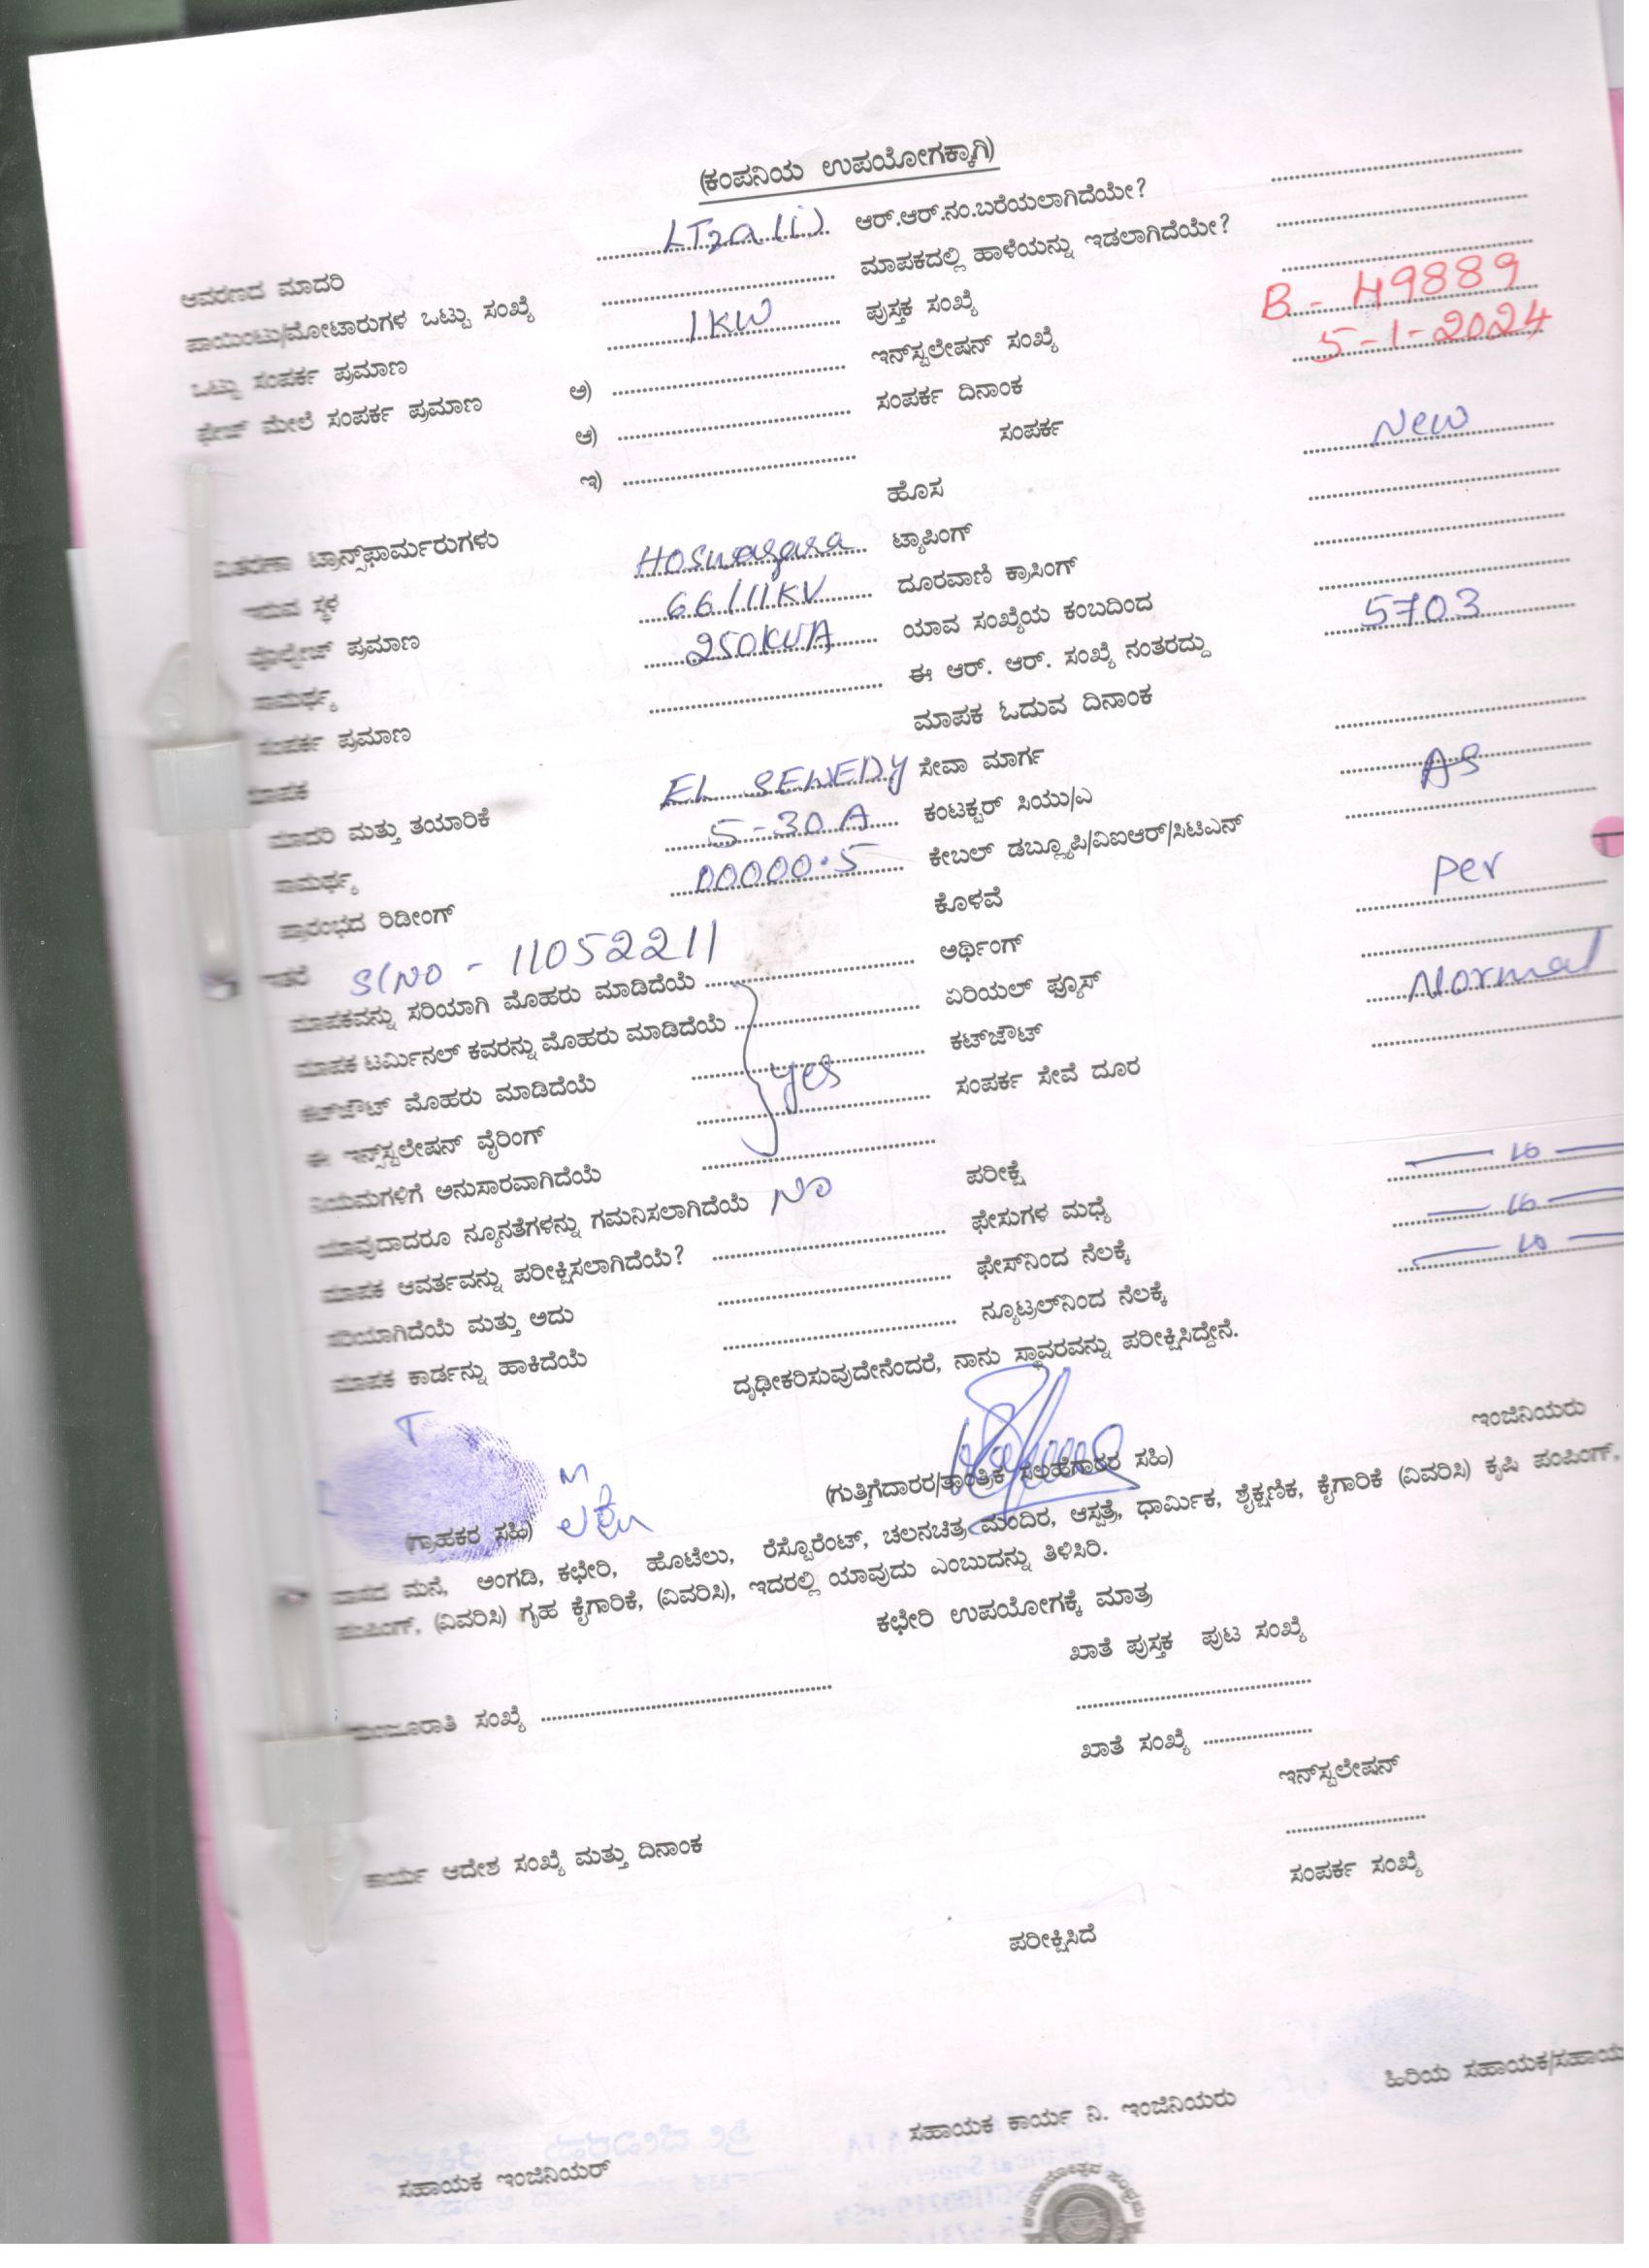 (ಕಂಪನಿಯ ಉಪಯೋಗಕ್ಕಾಗಿ)
ಆವರಣದ ಮಾದರಿ LT2a(i) ಆರ್.ಆರ್.ನಂ.ಬರೆಯಲಾಗಿದೆಯೇ?
ಪಾಯಿಂಟು/ಮೋಟಾರುಗಳ ಒಟ್ಟು ಸಂಖ್ಯೆ ಮಾಪಕದಲ್ಲಿ ಹಾಳೆಯನ್ನು ಇಡಲಾಗಿದೆಯೇ?
ಒಟ್ಟು ಸಂಪರ್ಕ ಪ್ರಮಾಣ 1KW ಪುಸ್ತಕ ಸಂಖ್ಯೆ
ಫೇಜ್ ಮೇಲೆ ಸಂಪರ್ಕ ಪ್ರಮಾಣ ಅ) ಇನ್‌ಸ್ಟಲೇಷನ್ ಸಂಖ್ಯೆ B - 49889
ಆ) ಸಂಪರ್ಕ ದಿನಾಂಕ 5-1-2024
ಇ) ಸಂಪರ್ಕ
ಹೊಸ New
ವಿತರಣಾ ಟ್ರಾನ್ಸ್‌ಫಾರ್ಮರುಗಳು ಟ್ಯಾಪಿಂಗ್
ಇರುವ ಸ್ಥಳ Hosnagara ದೂರವಾಣಿ ಕ್ರಾಸಿಂಗ್
ವೋಲ್ಟೇಜ್ ಪ್ರಮಾಣ 66/11KV ಯಾವ ಸಂಖ್ಯೆಯ ಕಂಬದಿಂದ
ಸಾಮರ್ಥ್ಯ 250KVA ಈ ಆರ್. ಆರ್. ಸಂಖ್ಯೆ ನಂತರದ್ದು 5703
ಸಂಪರ್ಕ ಪ್ರಮಾಣ ಮಾಪಕ ಓದುವ ದಿನಾಂಕ
ಮಾಪಕ ಸೇವಾ ಮಾರ್ಗ
ಮಾದರಿ ಮತ್ತು ತಯಾರಿಕೆ EL SEWEDY ಕಂಟಕ್ಟರ್ ಸಿಯು/ಎ AS
ಸಾಮರ್ಥ್ಯ 5-30 A ಕೇಬಲ್ ಡಬ್ಲ್ಯೂಪಿ/ವಿಐಆರ್/ಸಿಟಿಎನ್
ಪ್ರಾರಂಭದ ರಿಡೀಂಗ್ 00000.5 ಕೊಳವೆ per
ಇತರೆ Sl NO - 11052211 ಅರ್ಥಿಂಗ್
ಮಾಪಕವನ್ನು ಸರಿಯಾಗಿ ಮೊಹರು ಮಾಡಿದೆಯೆ ಏರಿಯಲ್ ಫ್ಯೂಸ್ Normal
ಮಾಪಕ ಟರ್ಮಿನಲ್ ಕವರನ್ನು ಮೊಹರು ಮಾಡಿದೆಯೆ ಕಟ್‌ಔಟ್
ಕಟ್‌ಔಟ್ ಮೊಹರು ಮಾಡಿದೆಯೆ yes ಸಂಪರ್ಕ ಸೇವೆ ದೂರ
ಈ ಇನ್ಸ್‌ಸ್ಟಲೇಷನ್ ವೈರಿಂಗ್
ನಿಯಮಗಳಿಗೆ ಅನುಸಾರವಾಗಿದೆಯೆ ಪರೀಕ್ಷೆ
ಯಾವುದಾದರೂ ನ್ಯೂನತೆಗಳನ್ನು ಗಮನಿಸಲಾಗಿದೆಯೆ No ಫೇಸುಗಳ ಮಧ್ಯೆ
ಮಾಪಕ ಆವರ್ತವನ್ನು ಪರೀಕ್ಷಿಸಲಾಗಿದೆಯೆ? ಫೇಸ್‌ನಿಂದ ನೆಲಕ್ಕೆ
ಸರಿಯಾಗಿದೆಯೆ ಮತ್ತು ಅದು ನ್ಯೂಟ್ರಲ್‌ನಿಂದ ನೆಲಕ್ಕೆ
ಮಾಪಕ ಕಾರ್ಡನ್ನು ಹಾಕಿದೆಯೆ ದೃಢೀಕರಿಸುವುದೇನೆಂದರೆ, ನಾನು ಸ್ಥಾವರವನ್ನು ಪರೀಕ್ಷಿಸಿದ್ದೇನೆ.
ಇಂಜಿನಿಯರು
(ಗ್ರಾಹಕರ ಸಹಿ) (ಗುತ್ತಿಗೆದಾರರ/ತಾಂತ್ರಿಕ ಸಲಹೆಗಾರರ ಸಹಿ)
ವಾಸದ ಮನೆ, ಅಂಗಡಿ, ಕಛೇರಿ, ಹೊಟೆಲು, ರೆಸ್ಟೊರೆಂಟ್, ಚಲನಚಿತ್ರ ಮಂದಿರ, ಆಸ್ಪತ್ರೆ, ಧಾರ್ಮಿಕ, ಶೈಕ್ಷಣಿಕ, ಕೈಗಾರಿಕೆ (ವಿವರಿಸಿ) ಕೃಷಿ ಪಂಪಿಂಗ್,
ಪಂಪಿಂಗ್, (ವಿವರಿಸಿ) ಗೃಹ ಕೈಗಾರಿಕೆ, (ವಿವರಿಸಿ), ಇದರಲ್ಲಿ ಯಾವುದು ಎಂಬುದನ್ನು ತಿಳಿಸಿರಿ.
ಕಛೇರಿ ಉಪಯೋಗಕ್ಕೆ ಮಾತ್ರ
ಖಾತೆ ಪುಸ್ತಕ ಪುಟ ಸಂಖ್ಯೆ
ಮಂಜೂರಾತಿ ಸಂಖ್ಯೆ
ಖಾತೆ ಸಂಖ್ಯೆ
ಇನ್‌ಸ್ಟಲೇಷನ್
ಕಾರ್ಯ ಆದೇಶ ಸಂಖ್ಯೆ ಮತ್ತು ದಿನಾಂಕ
ಸಂಪರ್ಕ ಸಂಖ್ಯೆ
ಪರೀಕ್ಷಿಸಿದೆ
ಹಿರಿಯ ಸಹಾಯಕ/ಸಹಾಯ
ಸಹಾಯಕ ಕಾರ್ಯ ನಿ. ಇಂಜಿನಿಯರು
ಸಹಾಯಕ ಇಂಜಿನಿಯರ್